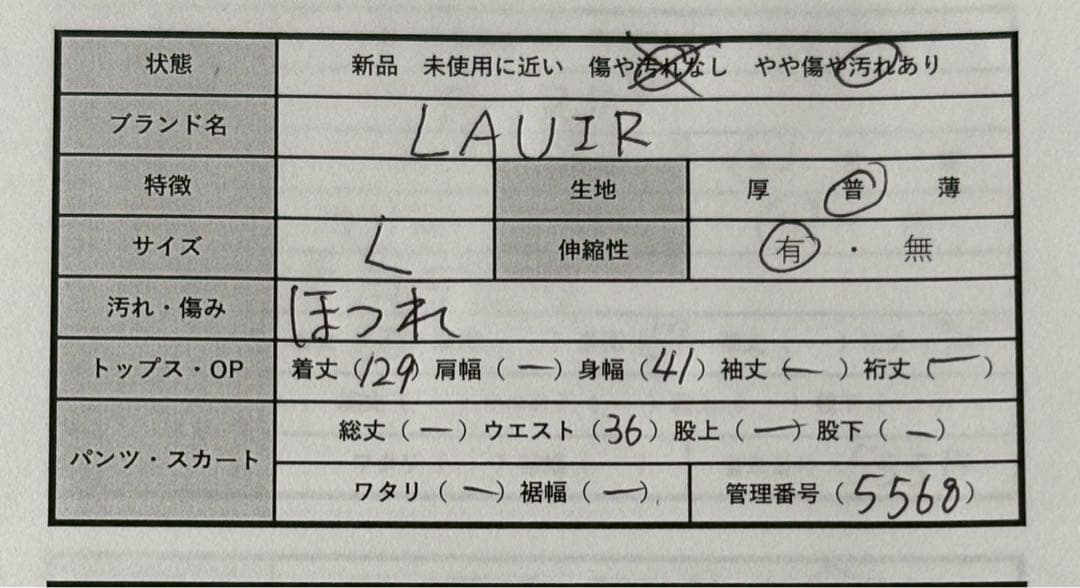 状態 新品 未使用に近い 傷や汚れなし やや傷や汚れあり
ブランド名 LAUIR
特徴 生地 厚 普 薄
サイズ L 伸縮性 有 ・ 無
汚れ・傷み ほつれ
トップス・OP 着丈(129) 肩幅(ー) 身幅(41) 袖丈(ー) 裄丈(ー)
パンツ・スカート 総丈(ー) ウエスト(36) 股上(ー) 股下(ー)
ワタリ(ー) 裾幅(ー) 管理番号(5568)